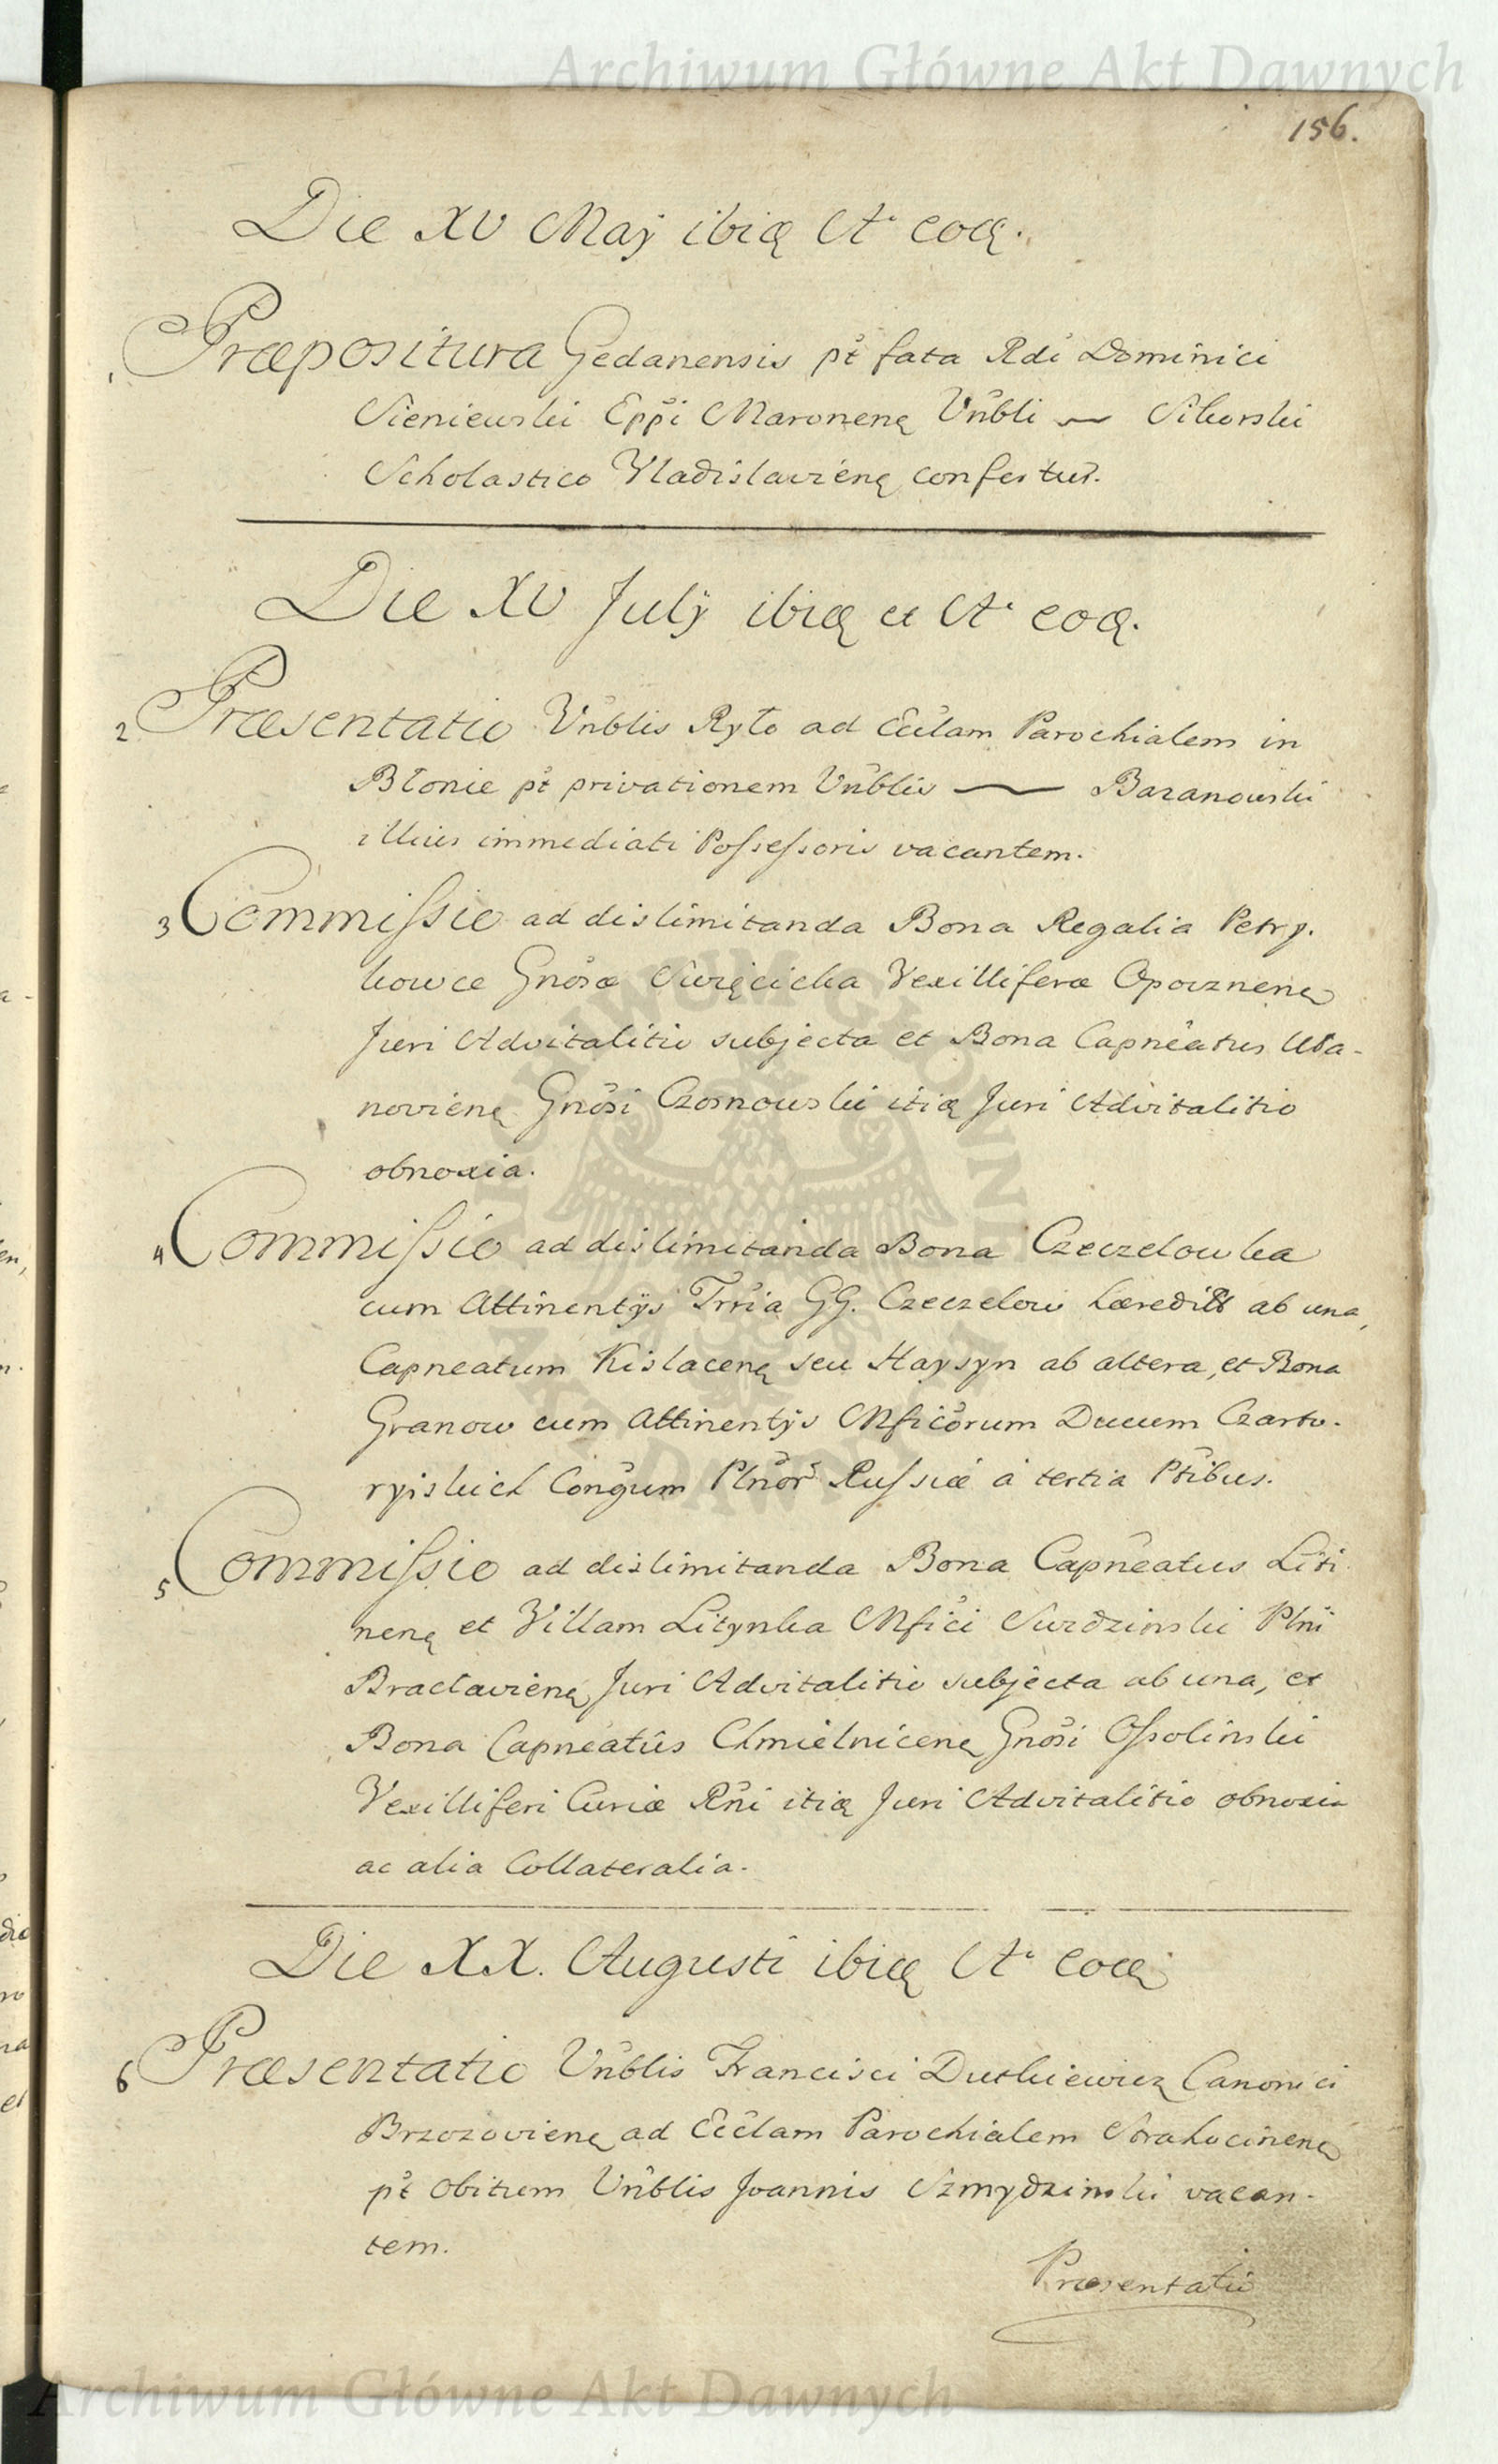 Archiwum Główne Akt Dawnych
156.
Die XV Maj ibiq A° eoq.
1 Præpositura Gedanensis pt fata Rdi Dominici
Sieniewski Eppi Maronenq Vnbli — Sikorski
Scholastico Vladislavienq confertur.
Die XV July ibiq et A° eoq.
2 Præsentatio Vnblis Ryło ad Ecclam Parochialem in
Błonie pt privationem Vnblis — Baranowski
illius immediati Possessoris vacantem.
3 Commissio ad dislimitanda Bona Regalia Petry-
kowce Gnosæ Swięcicka Vexilliferæ Opocznenq
Juri Advitalitio subjecta et Bona Capneatus Ula-
novienq Gnosi Czosnowski itiq Juri Advitalitio
obnoxia.
4 Commissio ad dislimitanda Bona Czeczelowka
cum Attinentijs Trria GG. Czeczelow hæredit ab una,
Capneatum Kislacenq seu Haysyn ab altera, et Bona
Granow cum Attinentijs Mficorum Ducum Czarto-
ryiskich Congum Plnor Russiæ á tertia Ptibus.
5 Commissio ad dislimitanda Bona Capneatus Liti-
nenq et Villam Litynka Mfici Swidzinski Plni
Braclavienq Juri Advitalitio subjecta ab una, et
Bona Capneatûs Chmielnicenq Gnosi Ossolinski
Vexilliferi Curiæ Rni itiq Juri Advitalitio obnoxia
ac alia Collateralia.
Die XX. Augusti ibiq A° eoq
6 Præsentatio Vnblis Francisci Dutkiewicz Canonici
Brzozovienq ad Ecclam Parochialem Strahocinenq
pt obitum Vnblis Joannis Szmydzinski vacan-
tem.
Præsentatio
Archiwum Główne Akt Dawnych